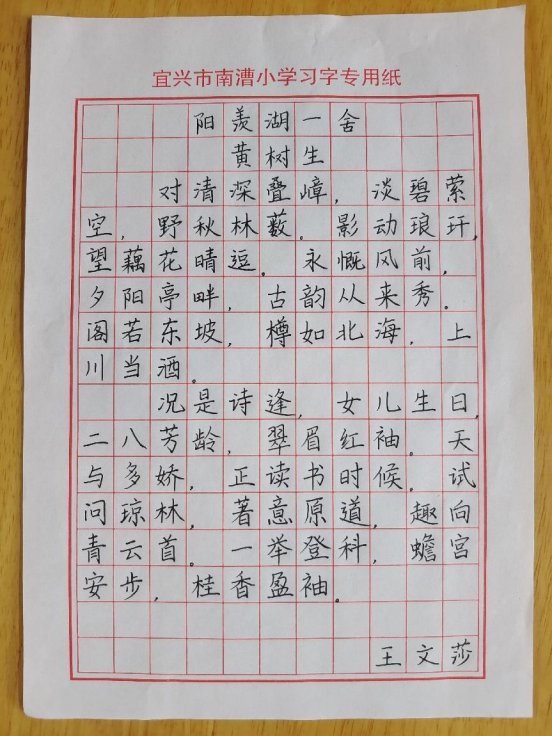 宜兴市南漕小学习字专用纸
阳羡湖一舍
黄树生
对清深叠嶂，淡碧萦
空，野秋林薮。影动琅玕，
望藕花晴逗。永慨风前，
夕阳亭畔，古韵从来秀。
阁若东坡，樽如北海，上
川当酒。
况是诗逢，女儿生日，
二八芳龄，翠眉红袖。天
与多娇，正读书时候。试
问琼林，著意原道，趣向
青云首。一举登科，蟾宫
安步，桂香盈袖。
王文莎